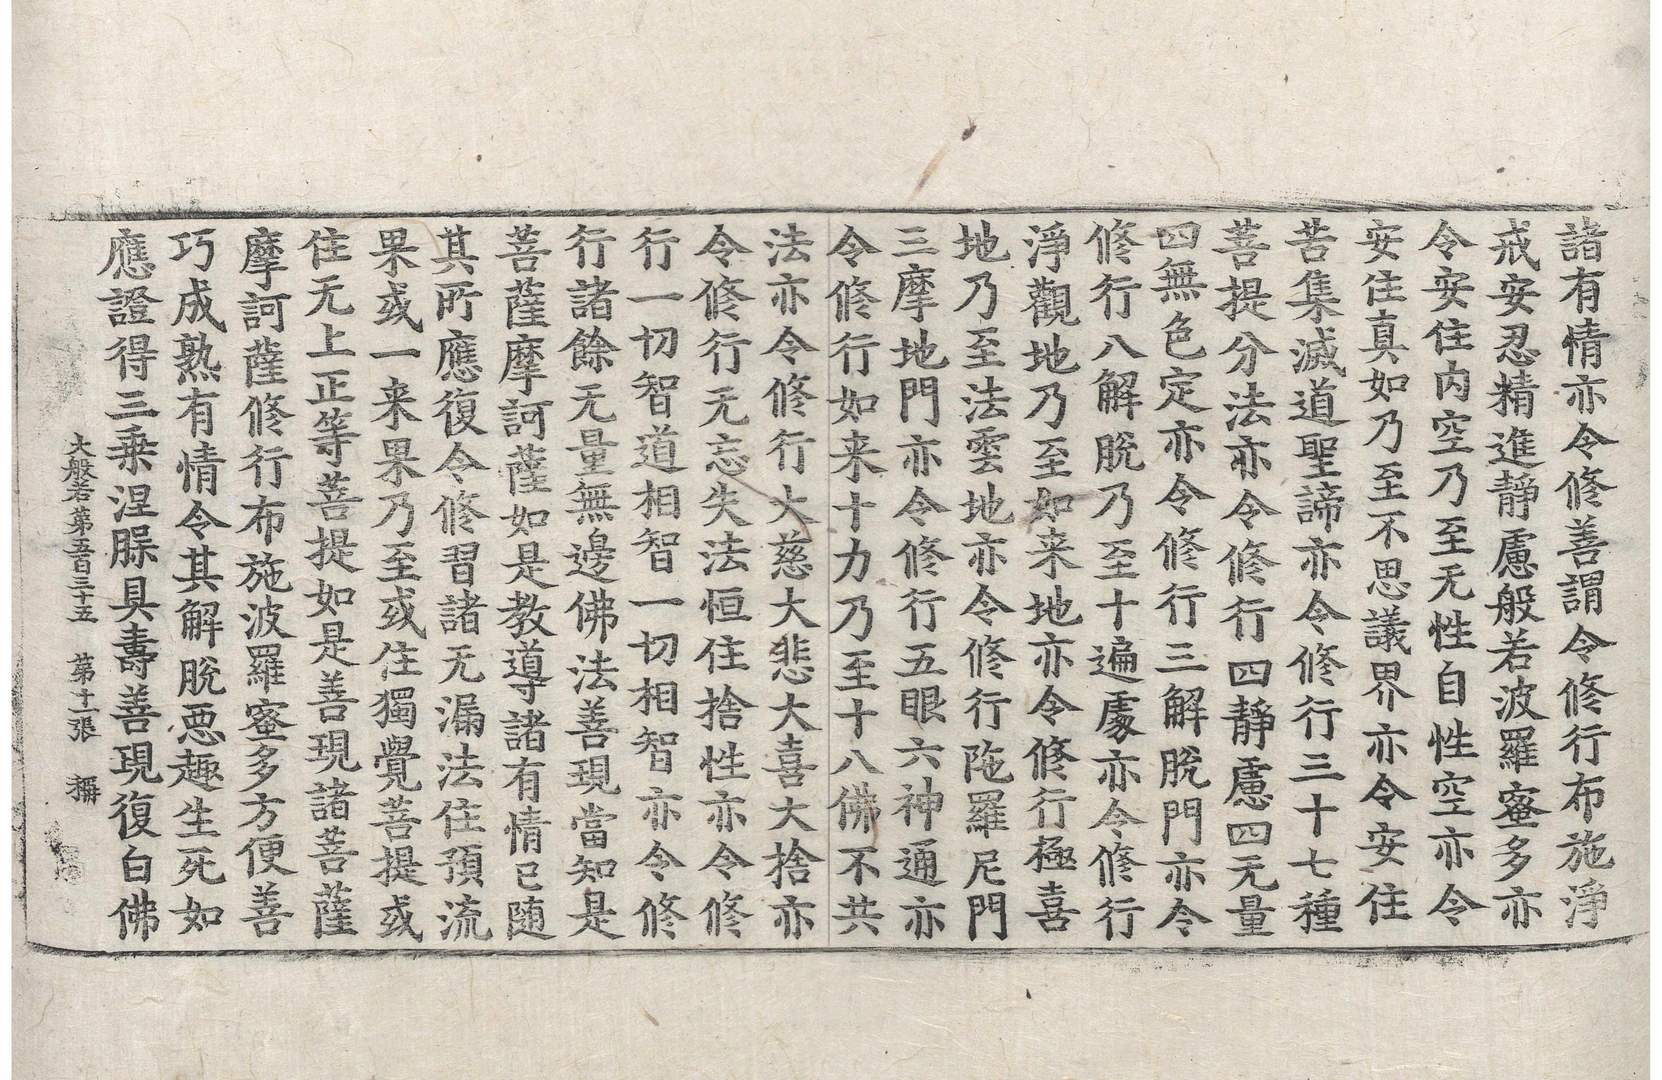 諸有情亦令修善謂令修行布施淨
戒安忍精進靜慮般若波羅蜜多亦
令安住内空乃至无性自性空亦令
安住真如乃至不思議界亦令安住
苦集滅道聖諦亦令修行三十七種
菩提分法亦令修行四靜慮四无量
四無色定亦令修行三解脫門亦令
修行八解脫乃至十遍處亦令修行
淨觀地乃至如来地亦令修行極喜
地乃至法雲地亦令修行陁羅尼門
三摩地門亦令修行五眼六神通亦
令修行如来十力乃至十八佛不共
法亦令修行大慈大悲大喜大捨亦
令修行无忘失法恒住捨性亦令修
行一切智道相智一切相智亦令修
行諸餘无量無邊佛法善現當知是
菩薩摩訶薩如是教導諸有情已随
其所應復令修習諸无漏法住預流
果或一来果乃至或住獨覺菩提或
住无上正等菩提如是善現諸菩薩
摩訶薩修行布施波羅蜜多方便善
巧成熟有情令其解脫惡趣生死如
應證得三乗涅槃具壽善現復白佛
大般若第五百三十五 第十一張